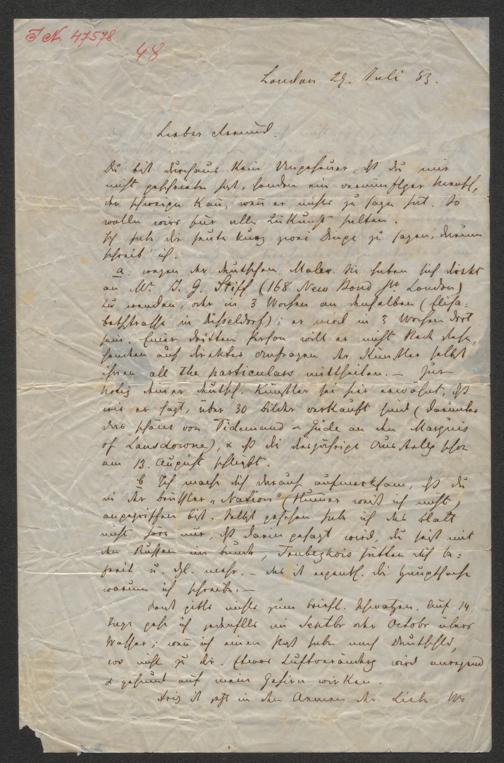 J.N. 47578
48
London 29. Juli 53.
Lieber Freund.
Du bist durchaus kein Ungeheuer, daß du mir
nicht geschrieben hast, sondern ein vernünftiger Mensch,
der schweigen kann, wenn er nichts zu sagen hat. So
wollen wir's für alle Zukunft halten.
Ich habe dir heute kurz zwei Dinge zu sagen, darum
schreib ich.
a. wegen der deutschen Maler. Sie haben sich direkt
an Mr. G. Stiff (168 New Bond St. London)
zu wenden, oder in 3 Wochen an denselben (Elisa-
bethstraße in Düsseldorf); er wird in 3 Wochen dort
sein. Einer dritten Person will er nicht Rede stehn,
sondern auf direkte Anfragen der Künstler selbst
ihnen all the particulars mittheilen. —
deutsch. Künstler sei hier erwähnt, daß
wie er sagt, über 30 Bilder verkauft sind (darunter
das von Tidemand – Gude an den Marquis
of Lansdowne), & daß die diesjährige Ausstellg schon
am 13. August schließt.
b Ich mache dich darauf aufmerksam, daß du
in der Brüssler „Nation" (Numer weiß ich nicht)
angegriffen bist. Selbst gesehen habe ich das Blatt
nicht, höre nur, daß darin gesagt wird, du seist mit
den Russen im Bunde, hätten dich be-
u. dgl. mehr. — das ist eigentl. die Hauptsache
warum ich schreibe. —
sonst gibts nichts zum briefl. Schwatzen. Auf 14
Tage gehe ich jedenfalls im Septbr oder Octobr übers
Wasser; wenn ich einen Paß habe nach Deutschld,
wo nicht zu dir. Etwas Luftveränderg wird anregend
& gesund auf mein Gehirn wirken.
in den Armen der Liebe. Wo